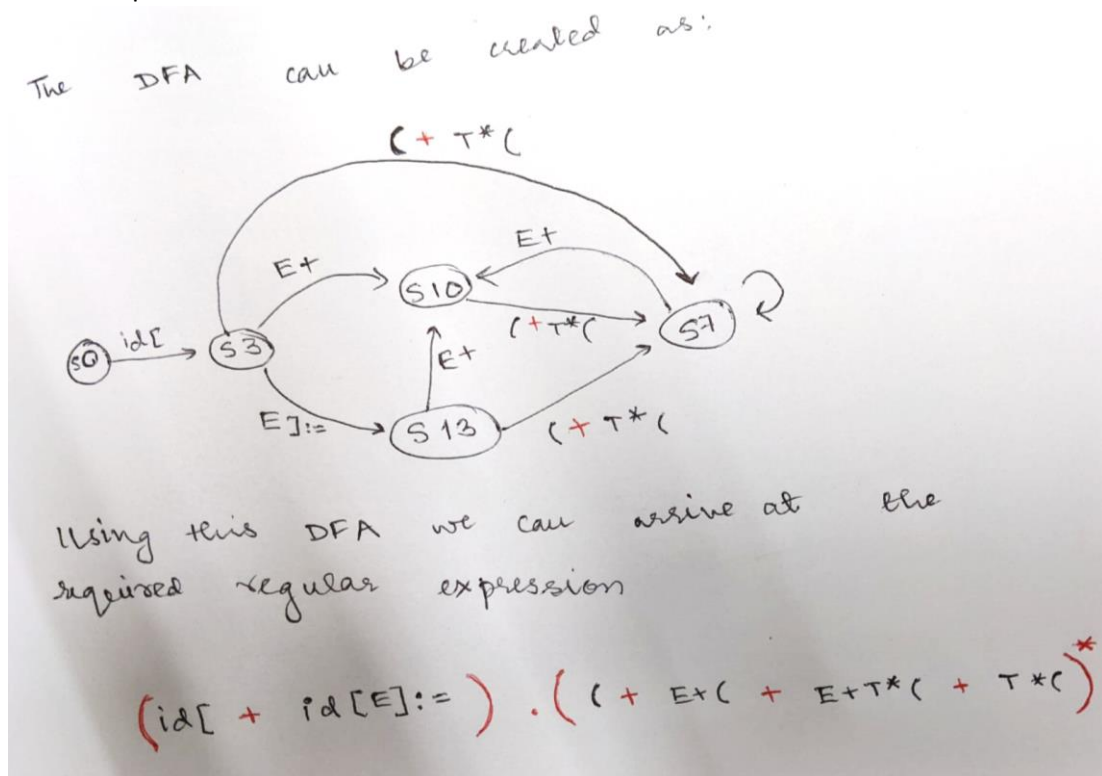 The DFA can be created as:
( + T*(
E+
E+
S10
( + T*(
S7
id[
S0
S3
E+
E]:=
S13
( + T*(
Using this DFA we can arrive at the
required regular expression
(id[ + id[E]:= ) . ( ( + E+( + E+T*( + T*( )*